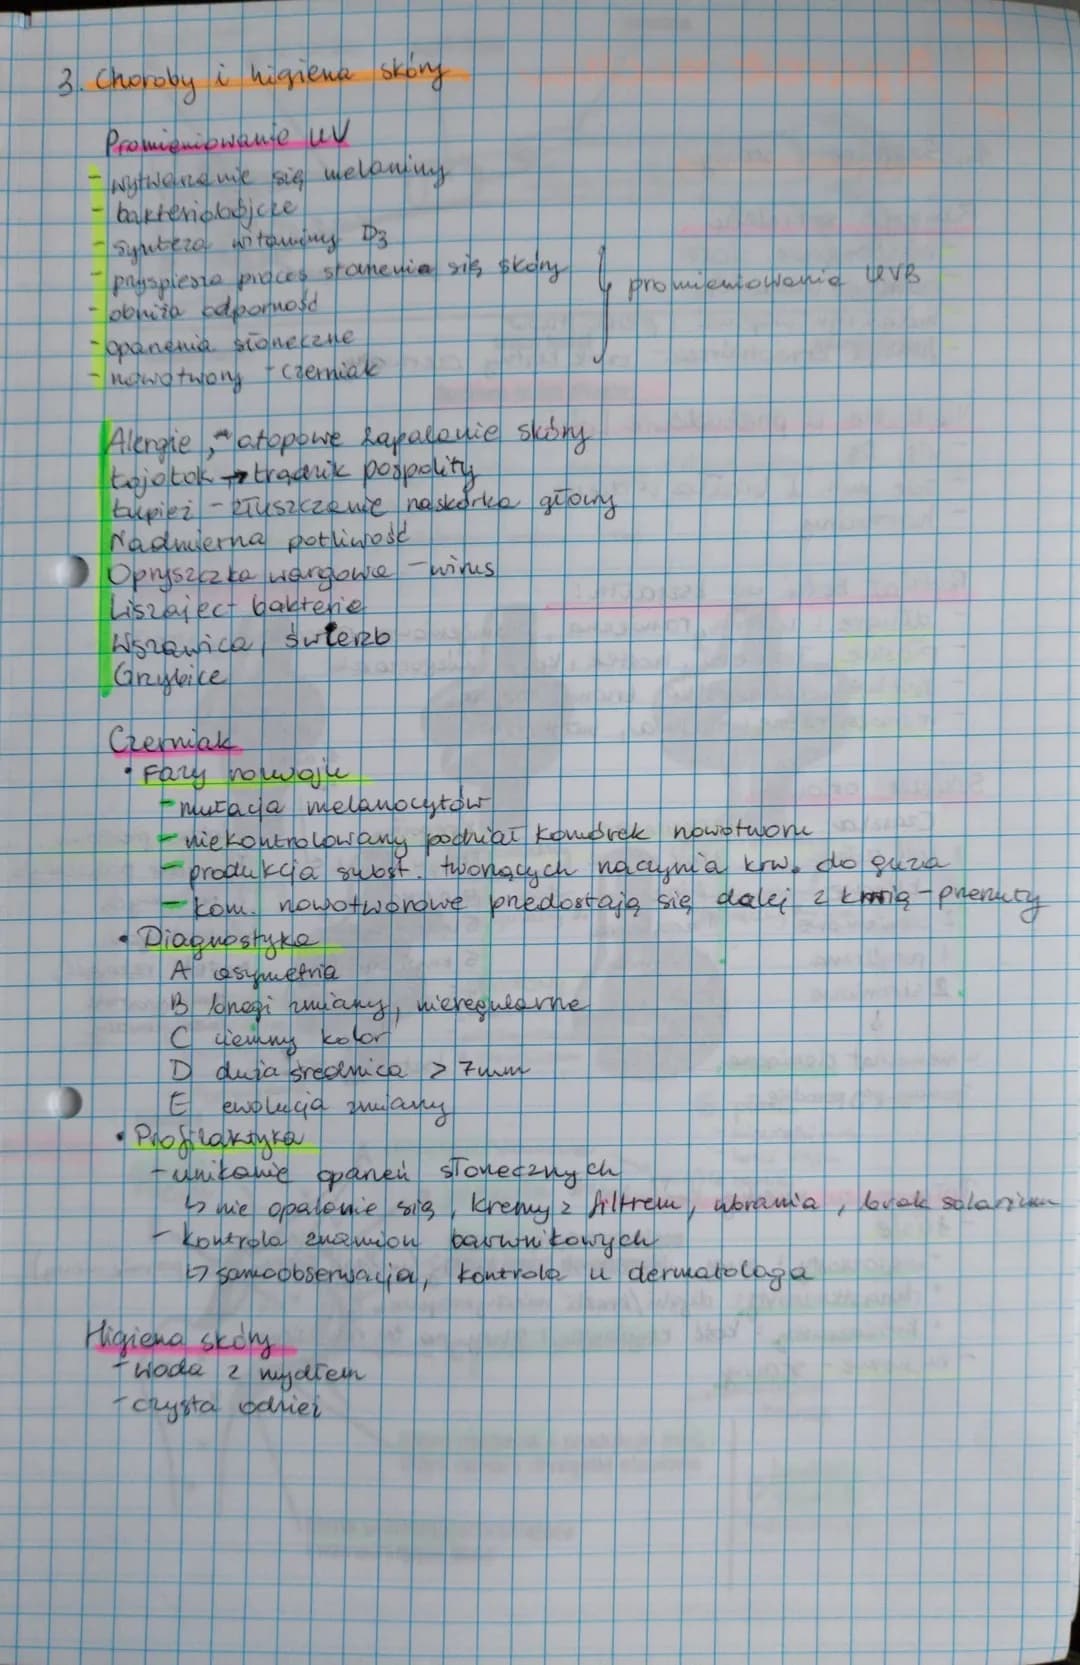 3. Choroby i higiena skóry
Promieniowanie UV
- wytwarzanie się melaniny
- bakteriobójcze
- synteza witaminy D3
- pryspiesza proces starzenia się skóry
promieniowania UVB
- obniża odporność
- oparzenia słoneczne
- nowotwory - czerniak
Alergie, - atopowe zapalenie skóry
Łojotok → trądzik pospolity
Łupież - złuszczanie naskórka głowy
Nadmierna potliwość
Opryszczka wargowa - wirus
Liszajec - bakterie
Wszawica, świerzb
Grzybice
Czerniak
• Fazy rozwoju
- mutacja melanocytów
- niekontrolowany podział komórek nowotworu
- produkcja subst. tworzących naczynia krw. do guza
- kom. nowotworowe przedostają się dalej z krwią - przerzuty
• Diagnostyka
A asymetria
B brzegi zmiany, nieregularne
C ciemny kolor
D duża średnica > 7mm
E ewolucja zmiany
• Profilaktyka
- unikanie oparzeń słonecznych
↳ nie opalanie się, kremy z filtrem, ubrania, brak solarium
- kontrola znamion barwnikowych
↳ samoobserwacja, kontrola u dermatologa
Higiena skóry
- woda z mydłem
- czysta odzież